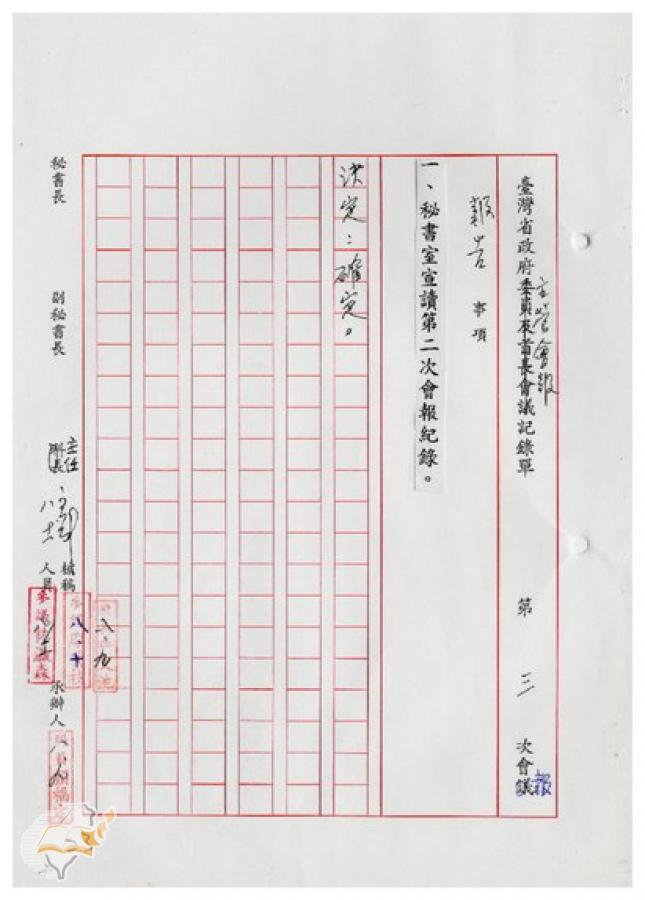 臺灣省政府委員及首長會議記錄單
主管會報
第 三 次會議
報
報告 事項
一、秘書室宣讀第二次會報紀錄。
決定：確定。
秘書長
副秘書長
主任
科長
核稿
人員
承辦人
八、九
八、十